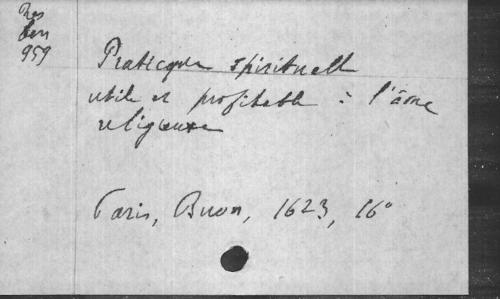 Res
959
Praticque spirituelle
utile et profitable à l'âme
religieuse
Paris, Buon, 1623, 16°